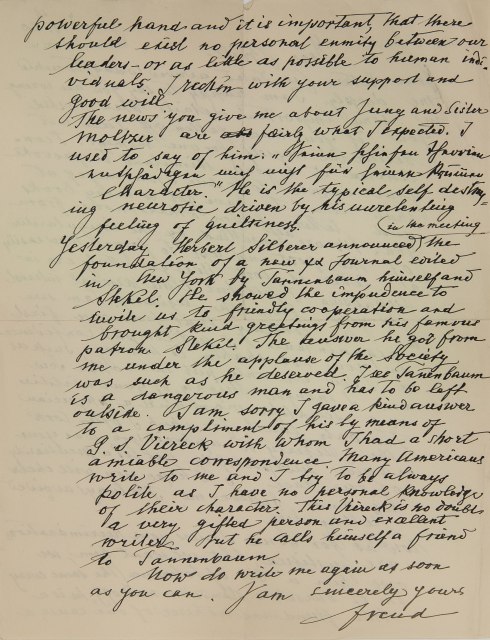 powerful hand and it is important, that there
should exist no personal enmity between our
leaders – or as little as possible to human indi-
viduals. I reckon with your support and
good will.
The news you give me about Jung and Sister
Moltzer are fairly what I expected. I
used to say of him: „Seine schönen Theorien
entschädigen mich nicht für seinen
Character.“ He is the typical self destroy-
ing neurotic driven by his unrelenting
feeling of guiltiness.
(in the meeting)
Yesterday Herbert Silberer announced the
foundation of a new ψα Journal edited
in New York by Tannenbaum himself and
Stekel. He showed the impudence to
invite us to friendly cooperation and
brought kind greetings from his famous
patron Stekel. The answer he got from
me under the applause of the Society
was such as he deserved. I see Tanenbaum
is a dangerous man and has to be left
outside. I am sorry I gave a kind answer
to a compliment of his by means of
G. S. Viereck with whom I had a short
amiable correspondence. Many Americans
write to me and I try to be always
polite as I have no personal knowledge
of their character. This Viereck is no doubt
a very gifted person and exellent
writer but he calls himself a friend
to Tannenbaum.
Now do write me again as soon
as you can. I am sincerely yours
Freud